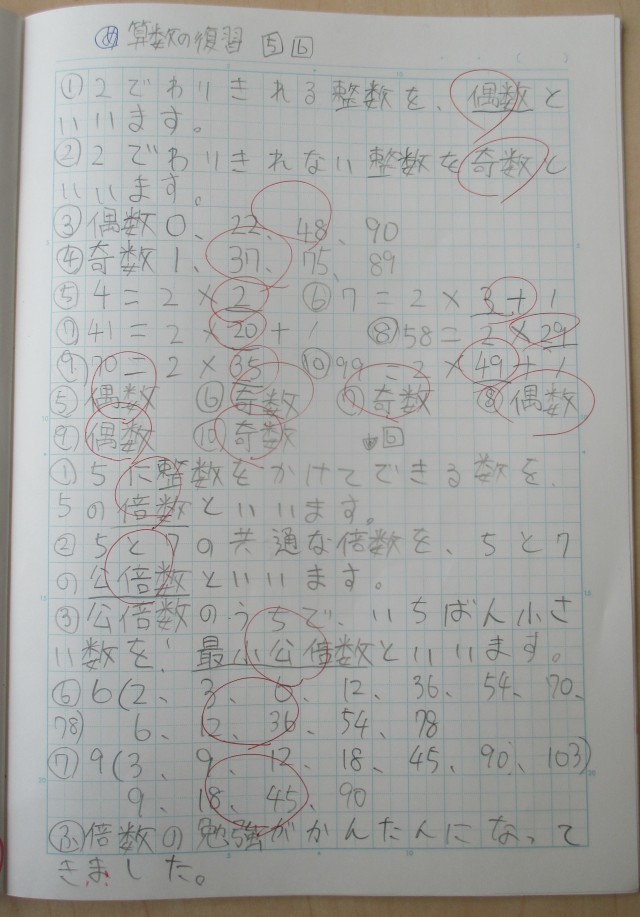 め 算数の復習 5 6
① 2でわりきれる整数を、偶数と
いいます。
② 2でわりきれない整数を奇数と
いいます。
③ 偶数 0、22、48、90
④ 奇数 1、37、75、89
⑤ 4=2×2 ⑥ 7=2×3+1
⑦ 41=2×20+1 ⑧ 58=2×29
⑨ 70=2×35 ⑩ 99=2×49+1
⑤ 偶数 ⑥ 奇数 ⑦ 奇数 ⑧ 偶数
⑨ 偶数 ⑩ 奇数 6
① 5に整数をかけてできる数を、
5の倍数といいます。
② 5と7の共通な倍数を、5と7
の公倍数といいます。
③ 公倍数のうちで、いちばん小さ
い数を、最小公倍数といいます。
⑥ 6(2、3、6、12、36、54、70、
78) 6、12、36、54、78
⑦ 9(3、9、12、18、45、90、103)
9、18、45、90
ふ 倍数の勉強がかんたんになって
きました。